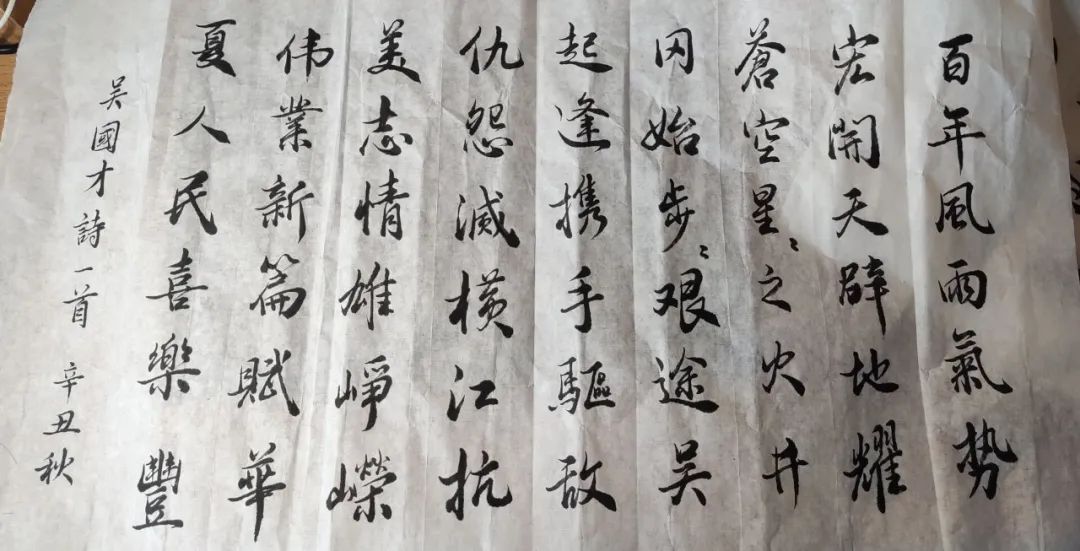 百年風雨氣势
宏開天辟地耀
蒼空星〻之火井
冈始步〻艰途吴
起逢携手驅敌
仇怨滅横江抗
美志情雄崢嶸
伟業新篇赋華
夏人民喜樂豐
吴國才詩一首 辛丑秋